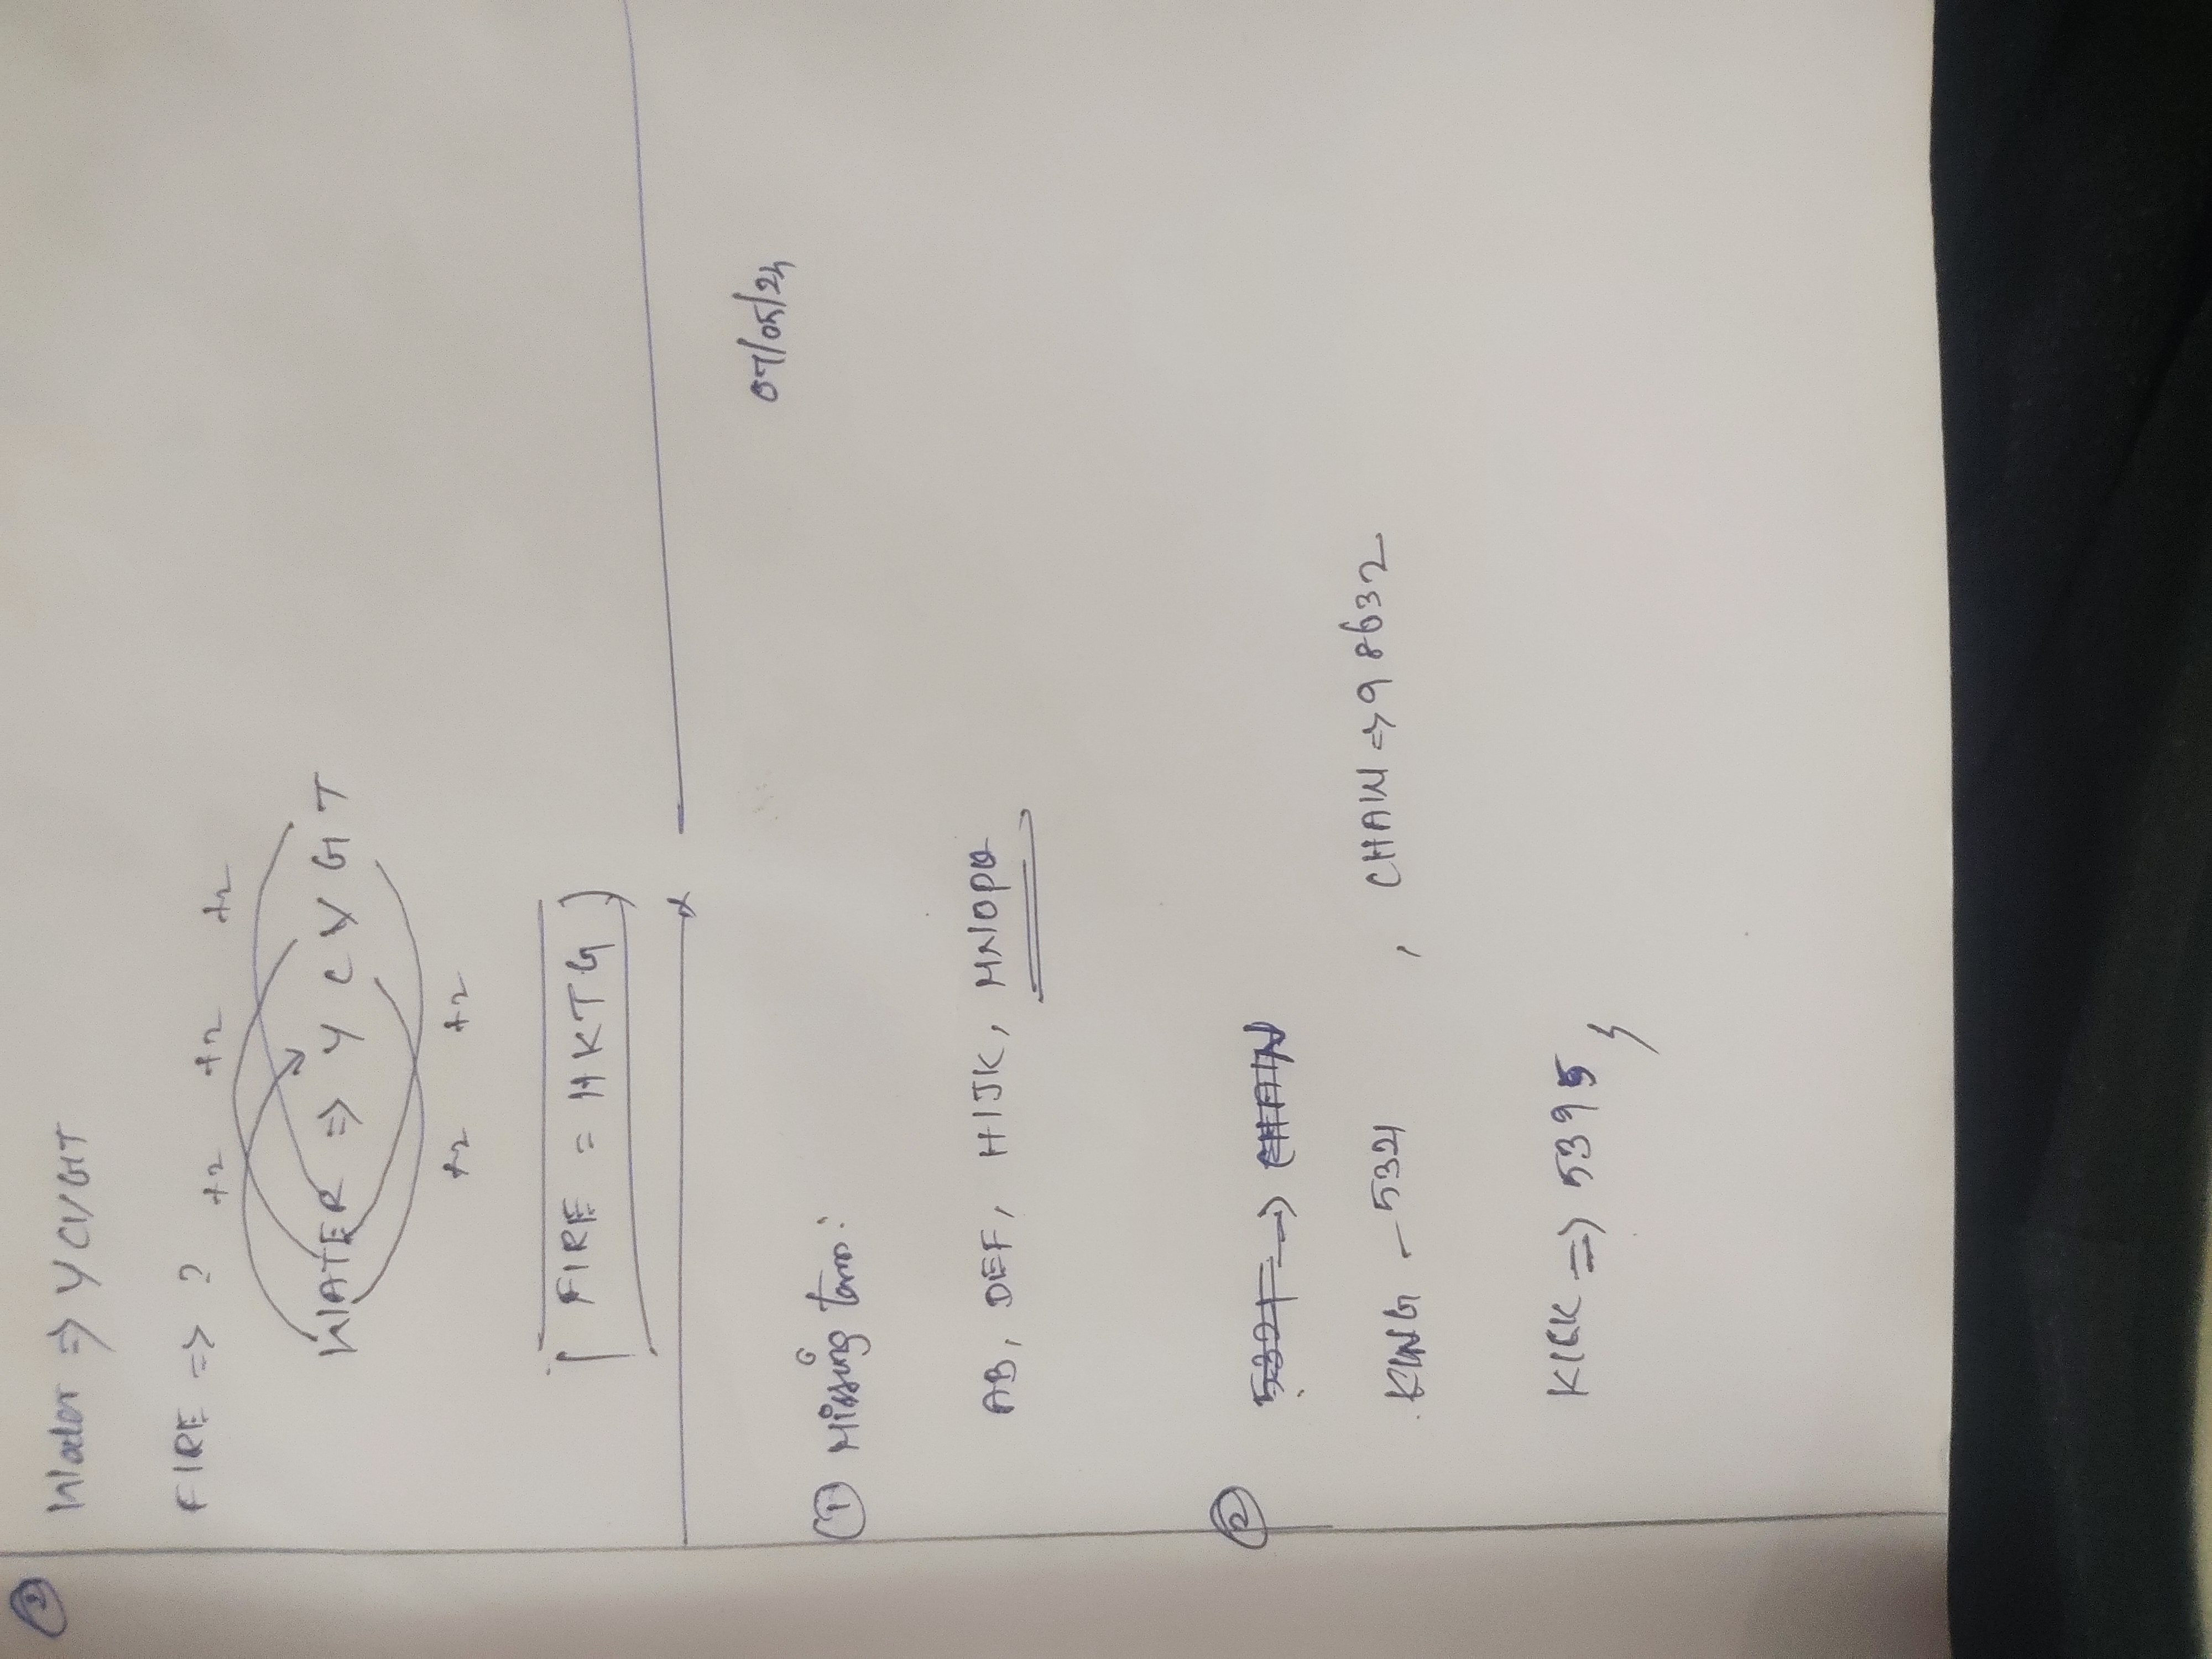 ②
Water => YCVGT
FIRE => ?
+2 +2 +2
WATER => Y C V G T
+2 +2
FIRE = HKTG
07/05/24
① Missing term:
AB, DEF, HIJK, MNOPQ
②
5321 -> CHAIN
KING - 5321 , CHAIN => 98632
KICK => 5395